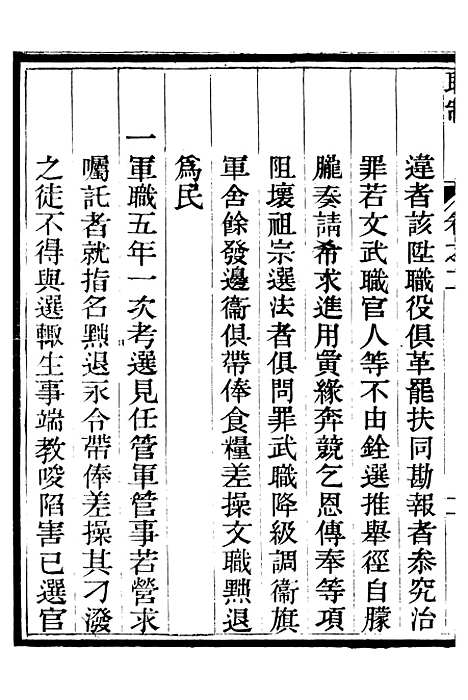 違者該陞職役俱革罷扶同勘報者叅究治
罪若文武職官人等不由銓選推舉徑自朦
朧奏請希求進用夤緣奔競乞恩傳奉等項
阻壞祖宗選法者俱問罪武職降級調衞旗
軍舍餘發邊衞俱帶俸食糧差操文職黜退
爲民
一軍職五年一次考選見任管軍管事若營求
囑託者就指名黜退永令帶俸差操其刁潑
之徒不得與選輙生事端教唆陷害已選官